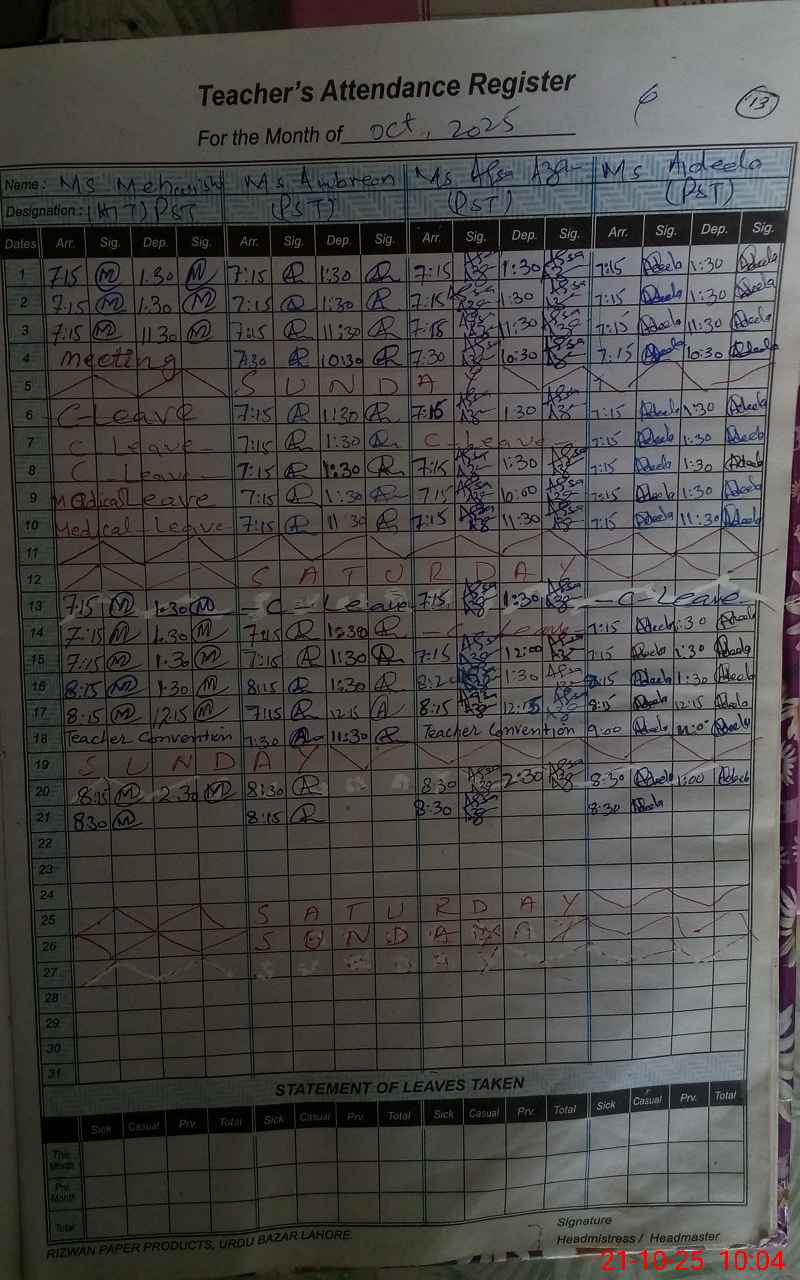 Teacher's Attendance Register
13
For the Month of Oct, 2025
Name: Ms Mehwish Ms Ambreen Ms Afsa Ms Adeela
Designation: (HT) PST (PST) (PST) (PST)
Dates Arr. Sig. Dep. Sig. Arr. Sig. Dep. Sig. Arr. Sig. Dep. Sig. Arr. Sig. Dep. Sig.
1 7:15 M 1:30 M 7:15 1:30 7:15 1:30 7:15 Adeela 1:30 Adeela
2 7:15 M 1:30 M 7:15 1:30 7:15 1:30 7:15 Adeela 1:30 Adeela
3 7:15 M 11:30 M 7:15 11:30 7:15 11:30 7:15 Adeela 11:30 Adeela
4 Meeting 7:30 10:30 7:30 10:30 7:15 Adeela 10:30 Adeela
5 S U N D A Y
6 C-Leave 7:15 1:30 7:15 1:30 7:15 Adeela 1:30 Adeela
7 C Leave 7:15 1:30 C-Leave 7:15 Adeela 1:30 Adeela
8 C-Leave 7:15 1:30 7:15 1:30 7:15 Adeela 1:30 Adeela
9 Medical Leave 7:15 1:30 7:15 10:00 7:15 Adeela 1:30 Adeela
10 Medical Leave 7:15 11:30 7:15 11:30 7:15 Adeela 11:30 Adeela
11
12 S A T U R D A Y
13 7:15 M 1:30 M -C-Leave 7:15 1:30 -C-Leave
14 7:15 M 1:30 M 7:15 1:30 -C-Leave 7:15 Adeela 1:30 Adeela
15 7:15 M 1:30 M 7:15 1:30 7:15 12:00 7:15 Adeela 1:30 Adeela
16 8:15 M 1:30 M 8:15 1:30 1:30 8:15 Adeela 1:30 Adeela
17 8:15 M 12:15 M 12:15 8:15 12:15 8:15 Adeela 12:15 Adeela
18 Teacher Convention 7:30 11:30 Teacher Convention 9:00 Adeela Adeela
19 S U N D A Y
20 8:15 M 2:30 M 8:30 8:30 2:30 8:30 Adeela 1:00 Adeela
21 8:30 M 8:15 8:30 8:30 Adeela
22
23
24
25 S A T U R D A Y
26 S U N D A Y
27
28
29
30
31
STATEMENT OF LEAVES TAKEN
Sick Casual Prv. Total Sick Casual Prv. Total Sick Casual Prv. Total Sick Casual Prv. Total
This Month
Prv. Month
Total
RIZWAN PAPER PRODUCTS, URDU BAZAR LAHORE
Signature
Headmistress / Headmaster
21-10-25 10:04